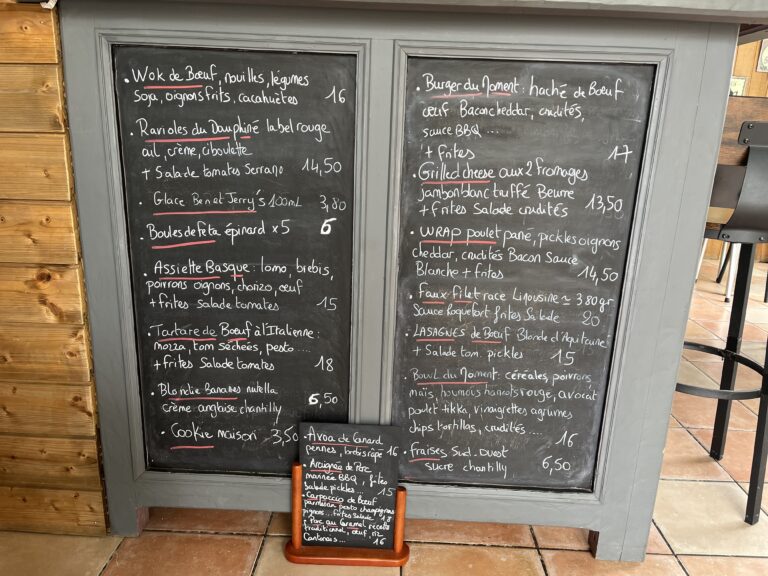 . Wok de Bœuf, nouilles, légumes
Soja, oignons frits, cacahuètes 16
. Ravioles du Dauphiné label rouge
ail, crème, ciboulette
+ Salade tomates Serrano 14,50
. Glace Ben et Jerry's 100mL 3,80
Boules de feta épinard x 5 6
. Assiette Basque : lomo, brebis,
poivrons oignons, chorizo, œuf
+ frites salade tomates 15
. Tartare de Bœuf à l'Italienne :
mozza, tom séchées, pesto ....
+ frites Salade tomates 18
. Blondie Bananes nutella
crème anglaise chantilly 6,50
. Cookie maison 3,50
. Burger du Moment : haché de Bœuf
œuf Bacon cheddar, crudités,
sauce BBQ ...
+ frites 17
. Grilled cheese aux 2 fromages
jambon blanc truffé Beurre
+ frites Salade crudités 13,50
. WRAP poulet pané, pickles oignons
cheddar, crudités Bacon Sauce
Blanche + frites 14,50
. Faux filet race Limousine ≃ 380gr
Sauce Roquefort frites Salade 20
. LASAGNES de Bœuf Blonde d'Aquitaine
+ Salade tom. pickles 15
. Bowl du Moment : céréales, poivrons,
maïs, houmous haricots rouge, avocat
poulet tikka, vinaigrettes agrumes
chips tortillas, crudités .... 16
. fraises Sud-Ouest
sucre chantilly 6,50
. Axoa de Canard 16
pennes, brebis râpé
. Araignée de Porc
marinée BBQ, frites
salade pickles ... 15
. Carpaccio de Bœuf
parmesan pesto champignons
pignons ... frites Salade 18
. Porc au Caramel recette
traditionnel, œuf, riz
Cantonais ... 16